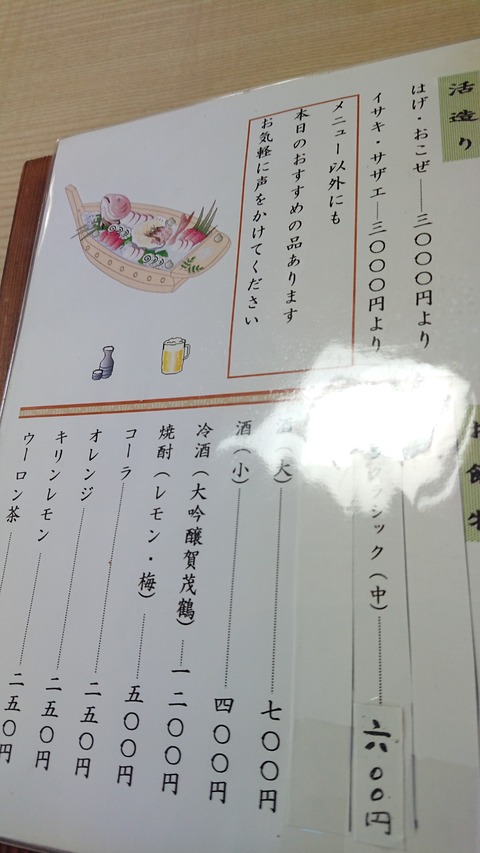 活造り
はげ・おこぜ――三〇〇〇円より
イサキ・サザエ―三〇〇〇円より
メニュー以外にも
本日のおすすめの品あります
お気軽に声をかけてください
シック(中) 六〇〇円
(大) 七〇〇円
酒(小) 四〇〇円
冷酒(大吟醸賀茂鶴) 一二〇〇円
焼酎(レモン・梅) 五〇〇円
コーラ 二五〇円
オレンジ 二五〇円
キリンレモン 二五〇円
ウーロン茶 二五〇円